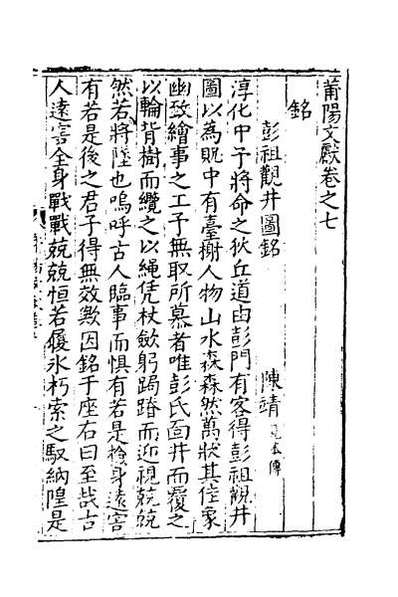 莆陽文獻卷之七
銘
彭祖觀井圖銘
陳靖 見本傳
淳化中予將命之狄丘道由彭門有客得彭祖觀井
圖以為貺中有臺榭人物山水森森然萬狀其佳象
幽致繪事之工予無取所慕者唯彭氏面井而覆之
以輪背樹而纜之以繩凭杖歛躬跼蹐而迎視兢兢
然若將墜也嗚呼古人臨事而懼有若是捡身遠害
有若是後之君子得無效歟因銘于座右曰至哉古
人遠害全身戰戰兢兢恒若履氷朽索之馭納隍是